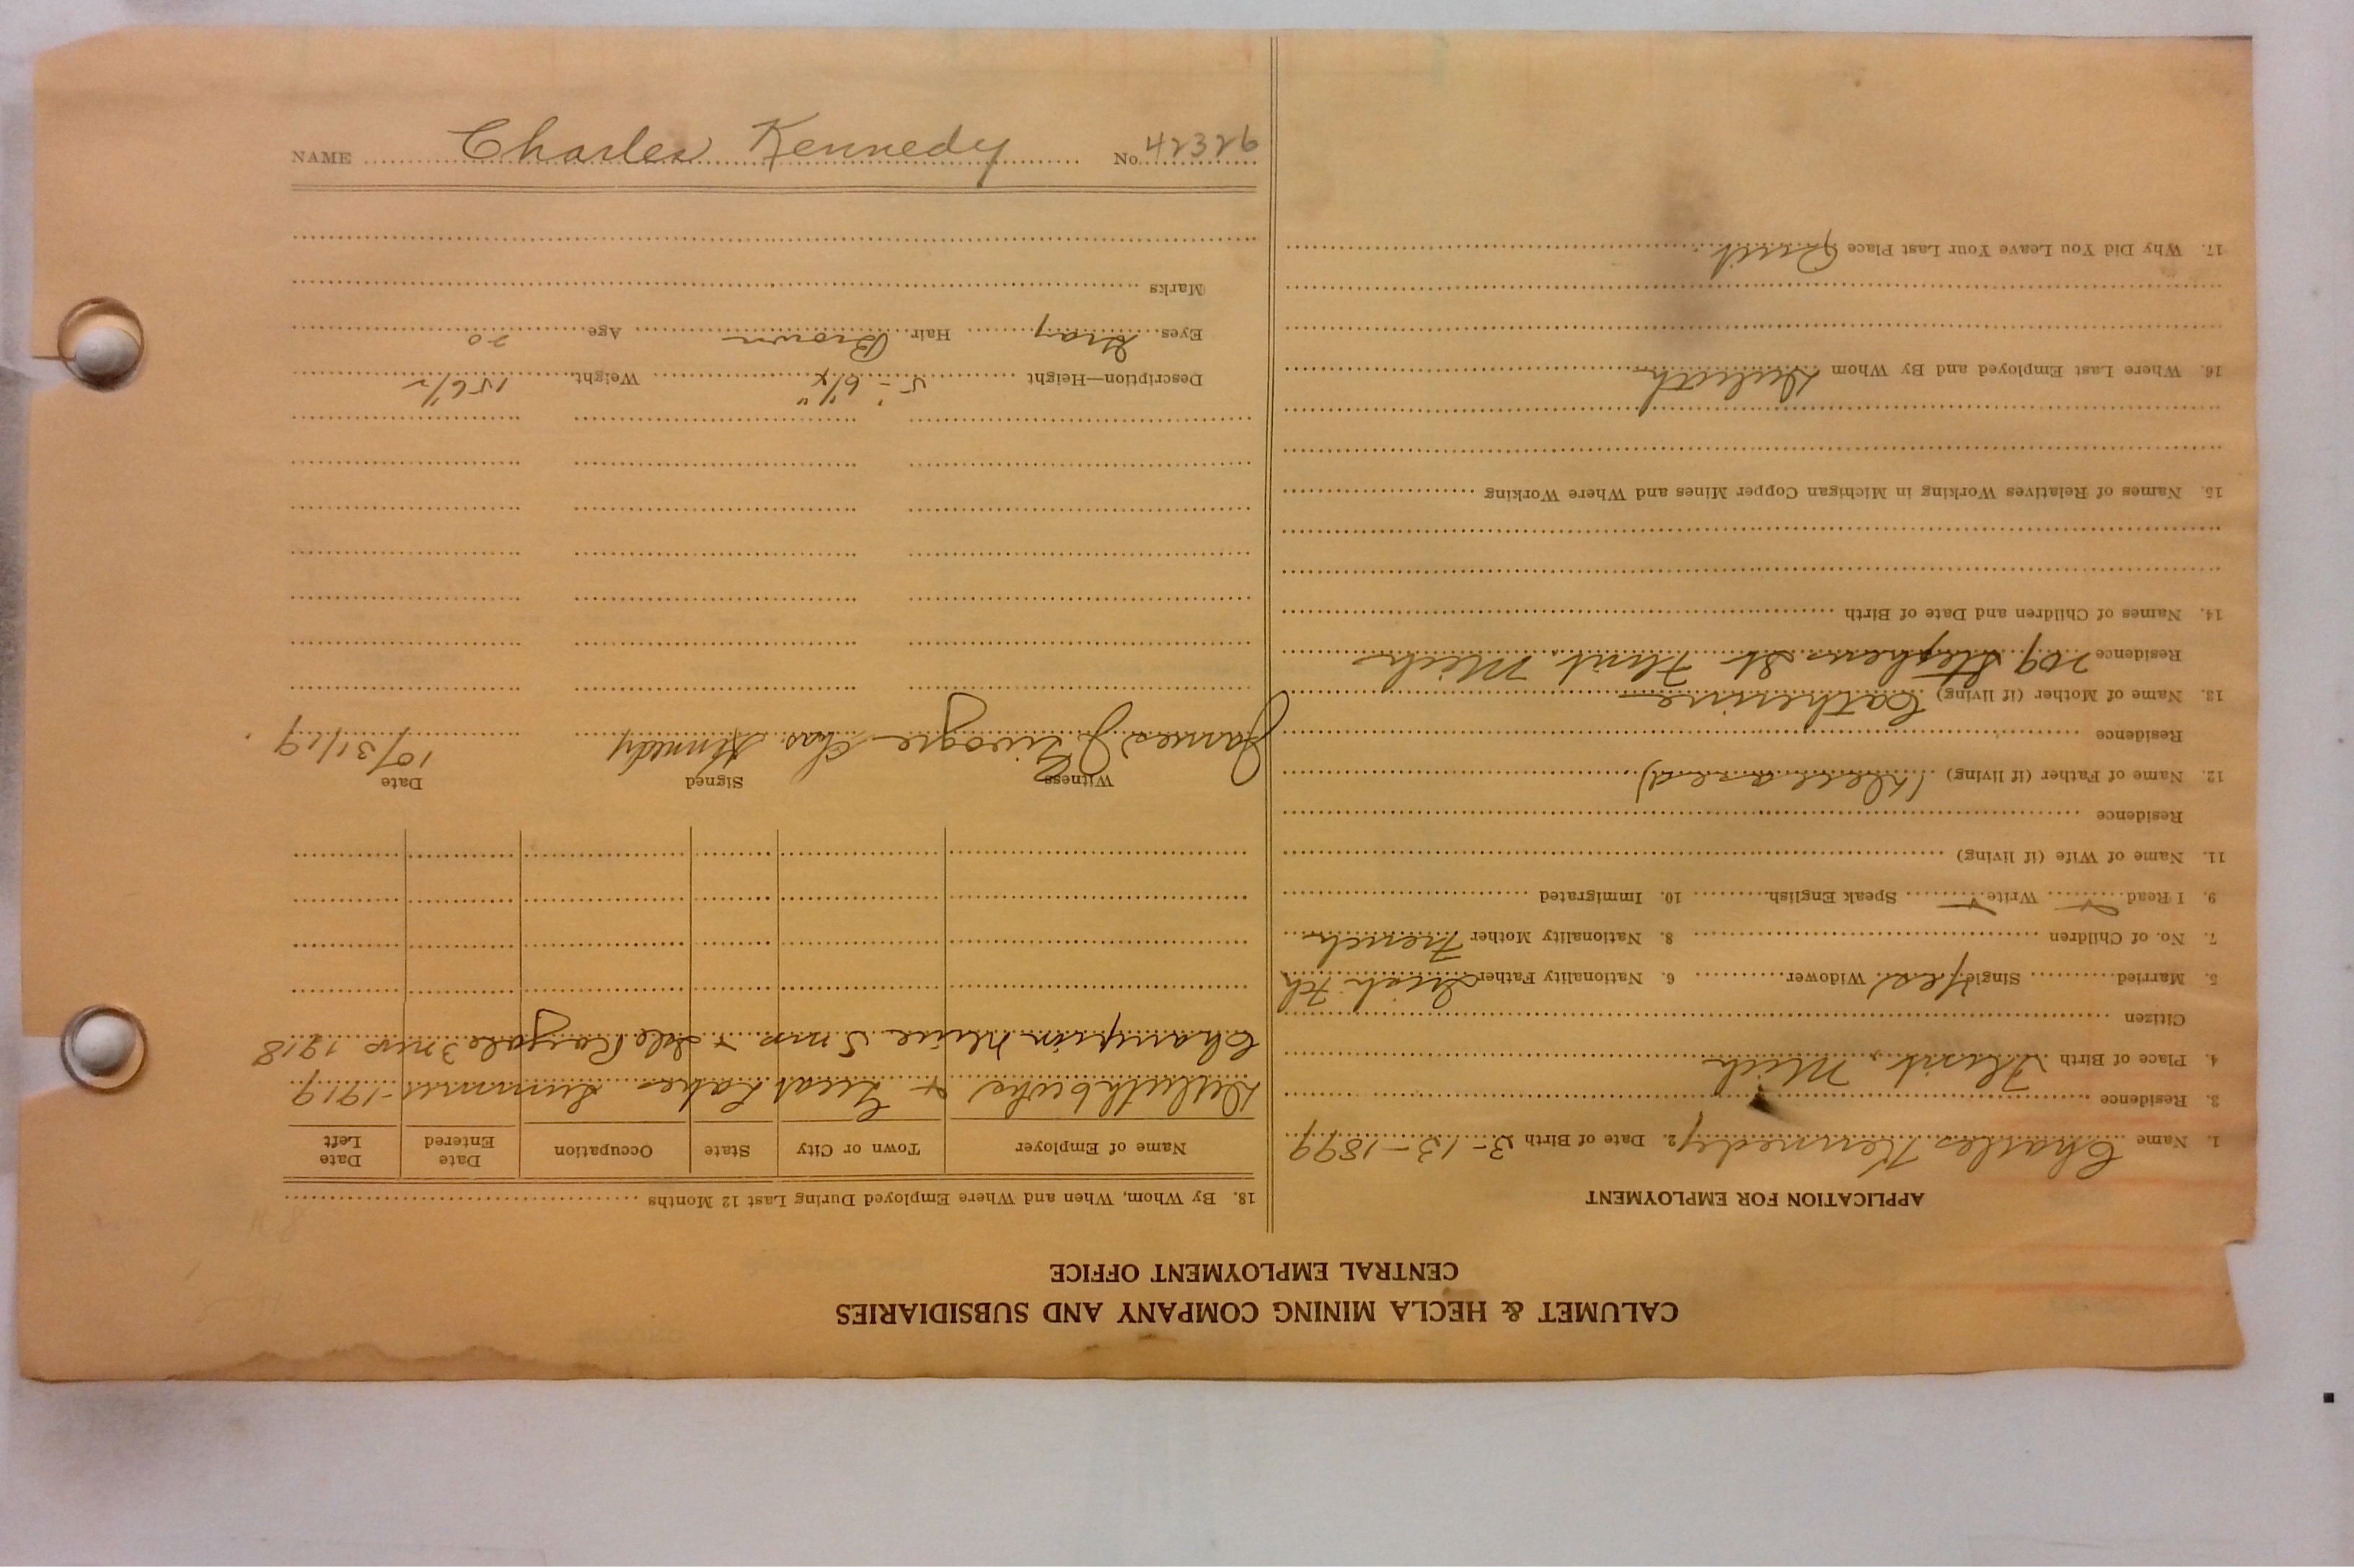 CALUMET & HECLA MINING COMPANY AND SUBSIDIARIES
CENTRAL EMPLOYMENT OFFICE
APPLICATION FOR EMPLOYMENT
1. Name Charles Kennedy 2. Date of Birth 3-13-1899
3. Residence
4. Place of Birth Flint, Mich
Citizen
5. Married Single Yes Widower 6. Nationality Father Irish Fch
7. No. of Children 8. Nationality Mother French
9. I Read ✓ Write ✓ Speak English 10. Immigrated
11. Name of Wife (if living)
Residence
12. Name of Father (if living) (Deceased)
Residence
13. Name of Mother (if living) Catherine
Residence 209 Stephens St Flint Mich
14. Names of Children and Date of Birth
15. Names of Relatives Working in Michigan Copper Mines and Where Working
16. Where Last Employed and By Whom Duluth
17. Why Did You Leave Your Last Place Quit
18. By Whom, When and Where Employed During Last 12 Months
Name of Employer Town or City State Occupation Date Entered Date Left
Duluth & Great Lakes Summer-1919
Champion Mice 5 mos & Isle Royale 3 mos 1918
Witness Signed Date
James Chas Kennedy 10/31/19
Description—Height 5'-6 1/2" Weight 156 1/2
Eyes Gray Hair Brown Age 20
Marks
NAME Charles Kennedy No. 42326